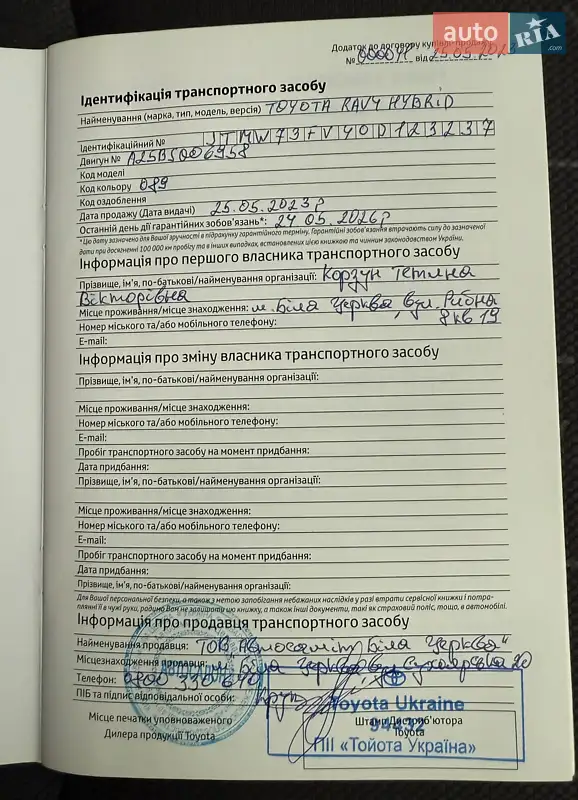 auto RIA.com
Додаток до договору купівлі-продажу
№ 000041 від 25.05.2023
Ідентифікація транспортного засобу
Найменування (марка, тип, модель, версія) TOYOTA RAV4 HYBRID
Ідентифікаційний № JTMW73FV40D123237
Двигун № A25BS006958
Код моделі
Код кольору 089
Код оздоблення
Дата продажу (Дата видачі) 25.05.2023р
Останній день дії гарантійних зобов'язань*: 24.05.2026р
*Цю дату зазначено для Вашої зручності в підрахунку гарантійного терміну. Гарантійні зобов'язання втрачають силу до зазначеної
дати при досягненні 100 000 км пробігу та в інших випадках, встановлених цією книжкою та чинним законодавством України.
Інформація про першого власника транспортного засобу
Прізвище, ім'я, по-батькові/найменування організації: Корзун Тетяна
Вікторівна
Місце проживання/місце знаходження: м. Біла Церква, вул. Рибна
Номер міського та/або мобільного телефону: 8 кв 19
E-mail:
Інформація про зміну власника транспортного засобу
Прізвище, ім'я, по-батькові/найменування організації:
Місце проживання/місце знаходження:
Номер міського та/або мобільного телефону:
E-mail:
Пробіг транспортного засобу на момент придбання:
Дата придбання:
Прізвище, ім'я, по-батькові/найменування організації:
Місце проживання/місце знаходження:
Номер міського та/або мобільного телефону:
E-mail:
Пробіг транспортного засобу на момент придбання:
Дата придбання:
Прізвище, ім'я, по-батькові/найменування організації:
Для Вашої персональної безпеки, а також з метою запобігання небажаних наслідків у разі втрати сервісної книжки і потра-
пляння її в чужі руки, радимо Вам не залишати цю книжку, а також інші документи, такі як страховий поліс, тощо, в автомобілі.
Інформація про продавця транспортного засобу
Найменування продавця: ТОВ "Автосаміт Біла Церква"
Місцезнаходження продавця: м Біла Церква вул
Телефон: 0800 330 640
ПІБ та підпис відповідальної особи:
Місце печатки уповноваженого
Дилера продукції Toyota
Штамп Дистриб'ютора
Toyota
Toyota Ukraine
94432
ПІІ «Тойота Україна»